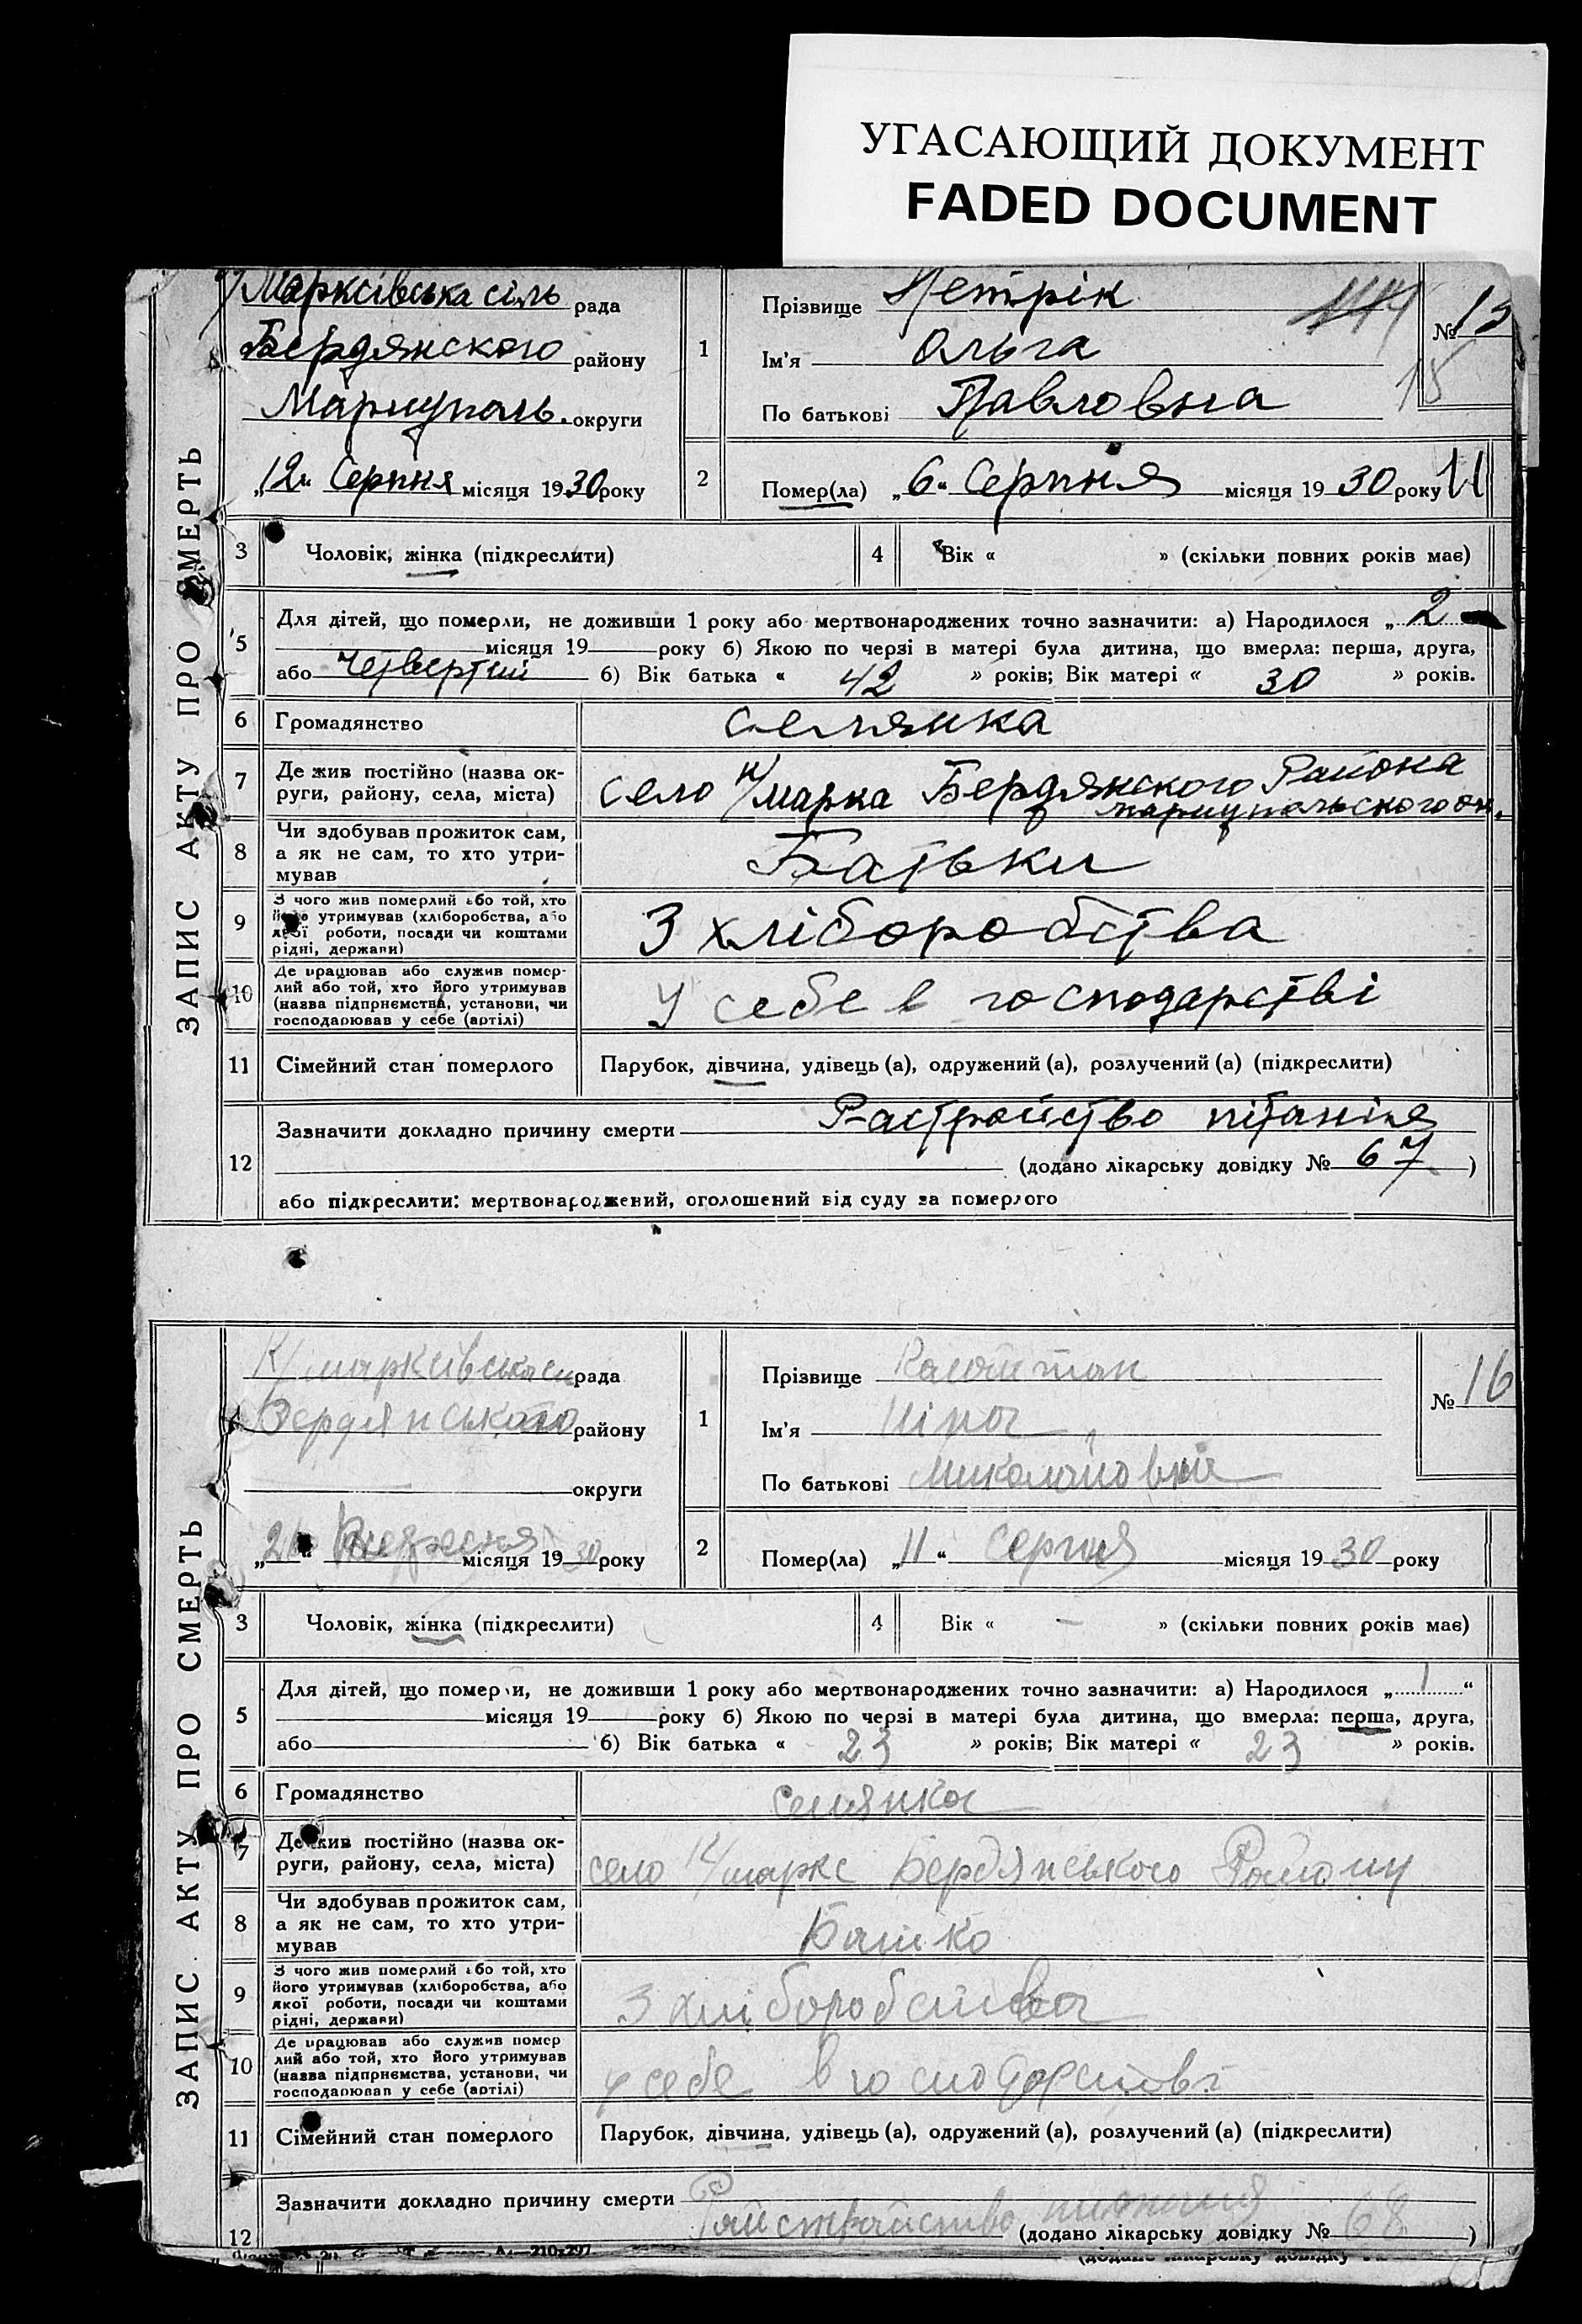 УГАСАЮЩИЙ ДОКУМЕНТ
FADED DOCUMENT
ЗАПИС АКТУ ПРО СМЕРТЬ
К/Марксівська сіль рада
Бердянского району
Мариуполь. округи
„12“ Серпня місяця 1930 року
1
Прізвище Петрік
Ім'я Ольга
По батькові Павловна
№ 15
15
2
Помер(ла) „6“ Серпня місяця 19 30 року
3 Чоловік, жінка (підкреслити)
4 Вік « » (скільки повних років має)
5 Для дітей, що померли, не доживши 1 року або мертвонароджених точно зазначити: а) Народилося „ 2
місяця 19 року б) Якою по черзі в матері була дитина, що вмерла: перша, друга,
або четвертий б) Вік батька « 42 » років; Вік матері « 30 » років.
6 Громадянство селянка
7 Де жив постійно (назва ок-
руги, району, села, міста)
село К/марка Бердянского Района
мариупольского ок.
8 Чи здобував прожиток сам,
а як не сам, то хто утри-
мував
Батьки
9 З чого жив померлий або той, хто
його утримував (хліборобства, або
якої роботи, посади чи коштами
рідні, держави)
З хліборобства
10 Де працював або служив помер-
лий або той, хто його утримував
(назва підприємства, установи, чи
господарював у себе (артілі)
У себе в господарстві
11 Сімейний стан померлого Парубок, дівчина, удівець (а), одружений (а), розлучений (а) (підкреслити)
12 Зазначити докладно причину смерти Растройство пітанія
(додано лікарську довідку № 67 )
або підкреслити: мертвонароджений, оголошений від суду за померлого
ЗАПИС АКТУ ПРО СМЕРТЬ
К/марксівська с рада
Бердянського району
округи
„ “ Вересня місяця 19 30 року
1
Прізвище
Ім'я Ніна
По батькові Миколаївна
№ 16
2
Помер(ла) „11“ Серпня місяця 19 30 року
3 Чоловік, жінка (підкреслити)
4 Вік « — » (скільки повних років має)
5 Для дітей, що померли, не доживши 1 року або мертвонароджених точно зазначити: а) Народилося „ 1 “
місяця 19 року б) Якою по черзі в матері була дитина, що вмерла: перша, друга,
або б) Вік батька « 23 » років; Вік матері « 23 » років.
6 Громадянство селянка
7 Де жив постійно (назва ок-
руги, району, села, міста)
село К/маркс Бердянського Району
8 Чи здобував прожиток сам,
а як не сам, то хто утри-
мував
Батько
9 З чого жив померлий або той, хто
його утримував (хліборобства, або
якої роботи, посади чи коштами
рідні, держави)
З хліборобства
10 Де працював або служив помер
лий або той, хто його утримував
(назва підприємства, установи, чи
господарював у себе (артілі)
у себе в господарстві
11 Сімейний стан померлого Парубок, дівчина, удівець (а), одружений (а), розлучений (а) (підкреслити)
12 Зазначити докладно причину смерти
питания
(додано лікарську довідку № 68 )